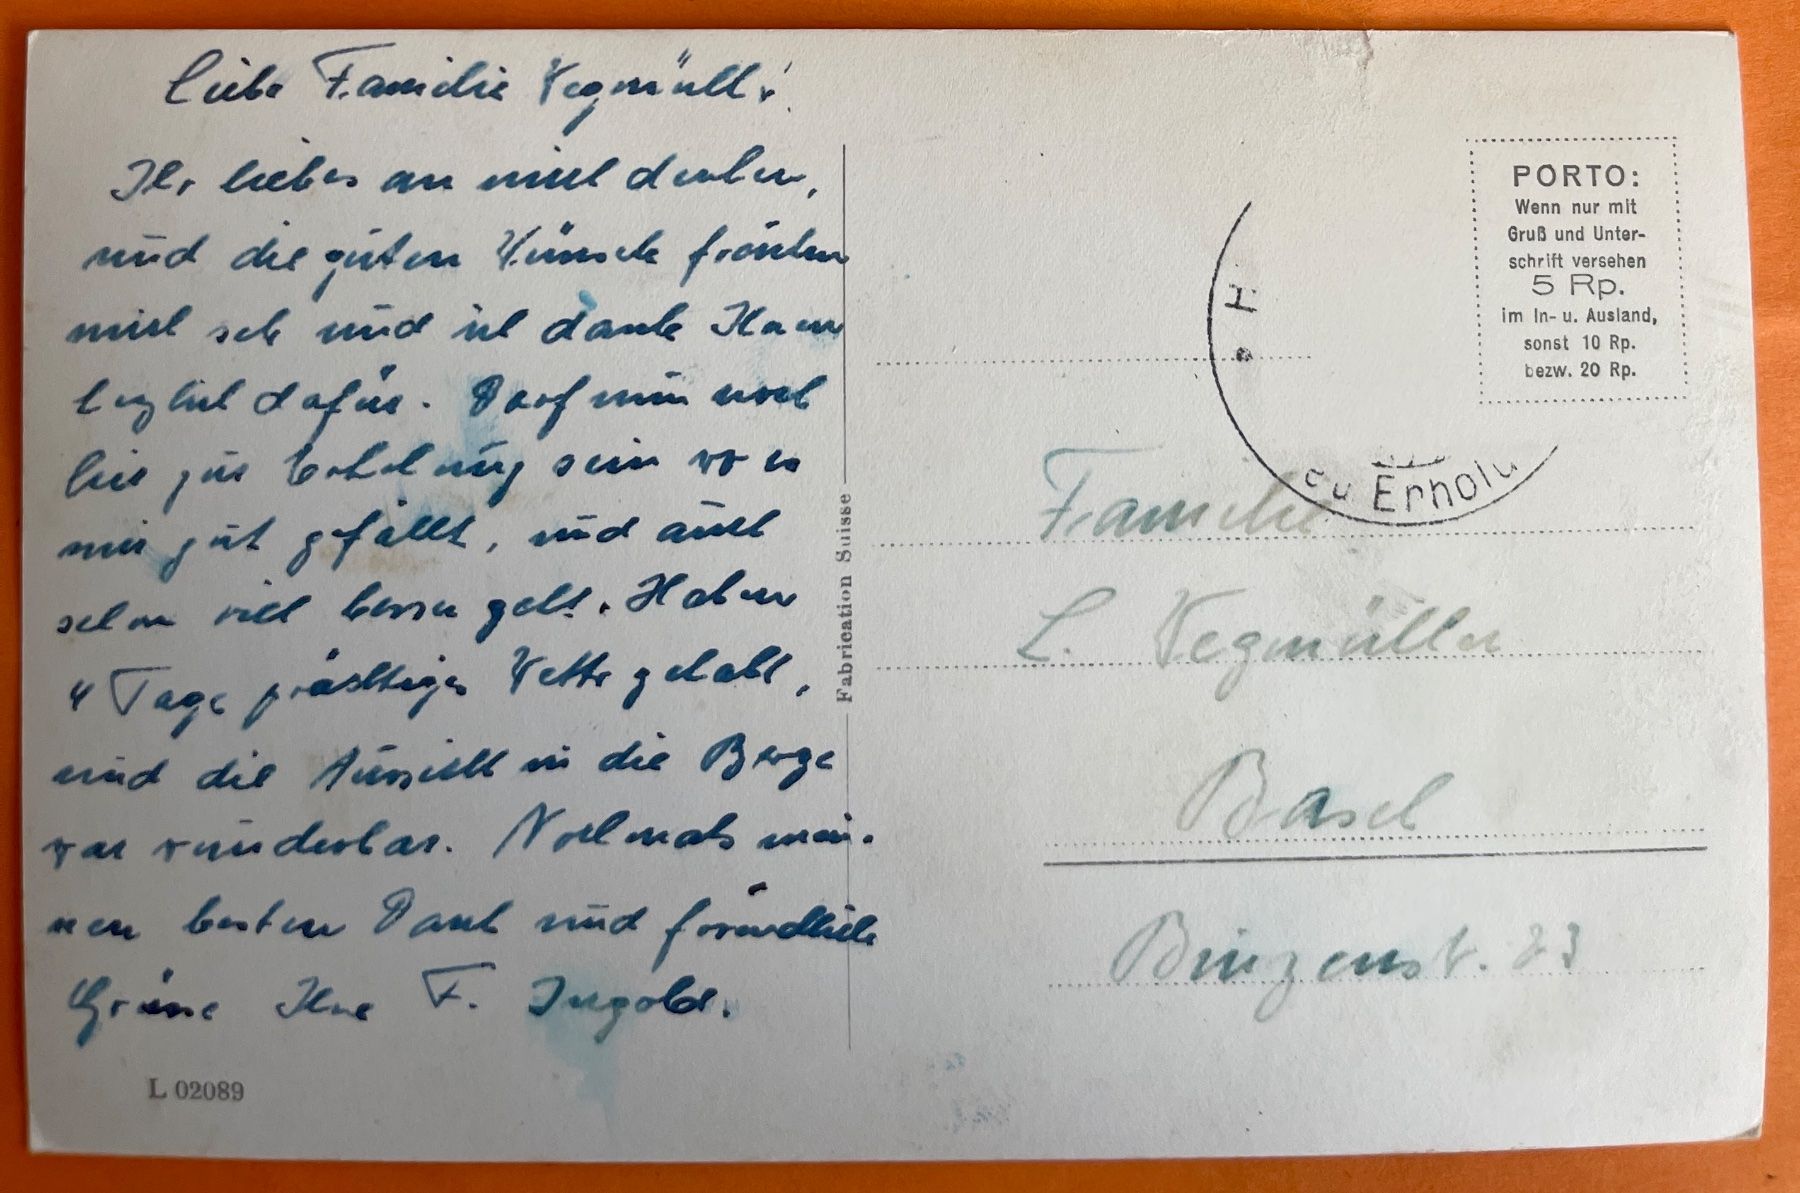 Liebe Familie Wegmüller!
Ihr liebes an mich denken,
und die guten Wünsche freuten
mich sehr und ich danke Ihnen
herzlich dafür. Darf nun noch
hier zur Erholung sein wo es
mir gut gefällt, und auch
schon viel besser geht. Haben
4 Tage prächtiges Wetter gehabt,
und die Aussicht in die Berge
war wunderbar. Nochmals mei-
nen besten Dank und freundliche
Grüsse Ihre F. Ingold.
L 02089
Fabrication Suisse
PORTO:
Wenn nur mit
Gruß und Unter-
schrift versehen
5 Rp.
im In- u. Ausland,
sonst 10 Rp.
bezw. 20 Rp.
H
zu Erholu
Familie
L. Wegmüller
Basel
Binzenstr. 23